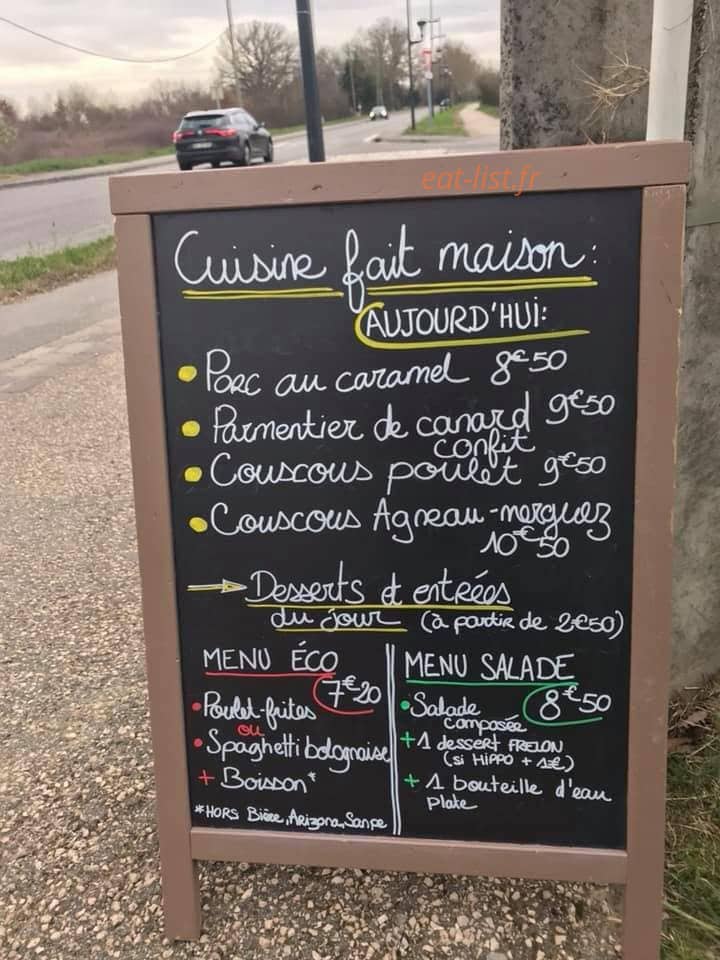 eat-list.fr
Cuisine fait maison :
AUJOURD'HUI:
Porc au caramel 8€50
Parmentier de canard 9€50
confit
Couscous poulet 9€50
Couscous Agneau-merguez
10€50
Desserts et entrées
du jour (à partir de 2€50)
MENU ÉCO
7€20
• Poulet-frites
ou
• Spaghetti bolognaise
+ Boisson*
*HORS Bière, Arizona, Sanpe
MENU SALADE
8€50
• Salade
composée
+ 1 dessert FRELON
(si HIPPO + 1€)
+ 1 bouteille d'eau
plate